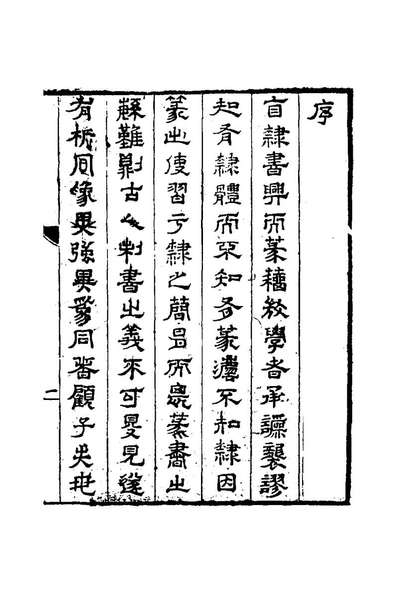 序
自隸書興而篆籒絶學者承譌襲謬
知有隸體而不知有篆灋不知隸因
篆出便習于隸之簡易而畏篆書之
難則古人制書之義不可夏見遂
有析同爲異強異爲同者顧子夫也
二